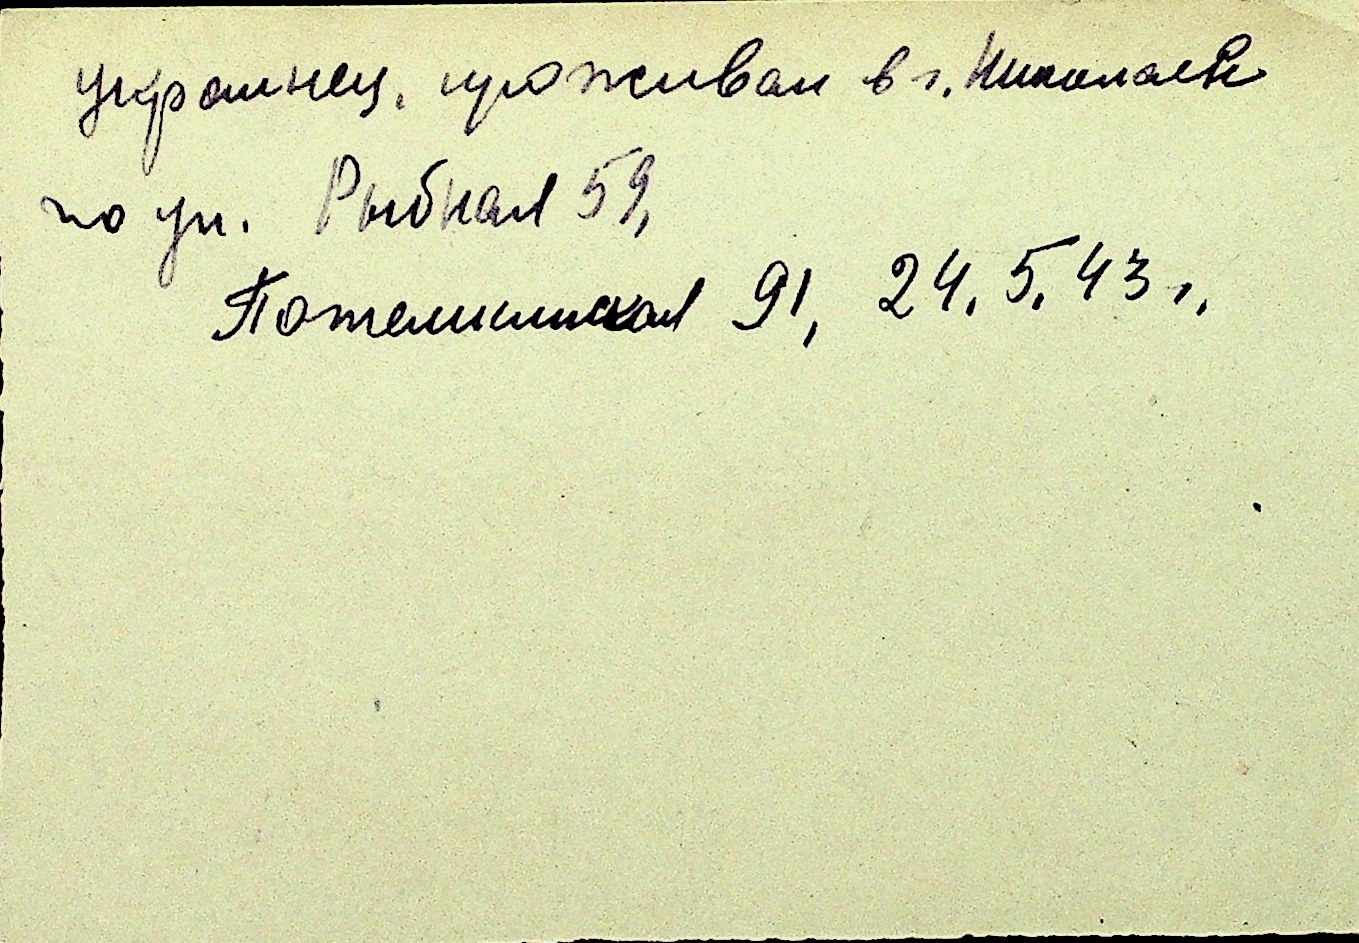 украинец, проживал в г. Николаеве
по ул. Рыбная 59,
Потемкинская 91, 24.5.43 г.